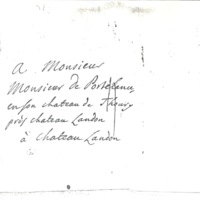 A Monsieur
Monsieur de
en son chateau de Thoury
près chateau Landon
à chateau Landon